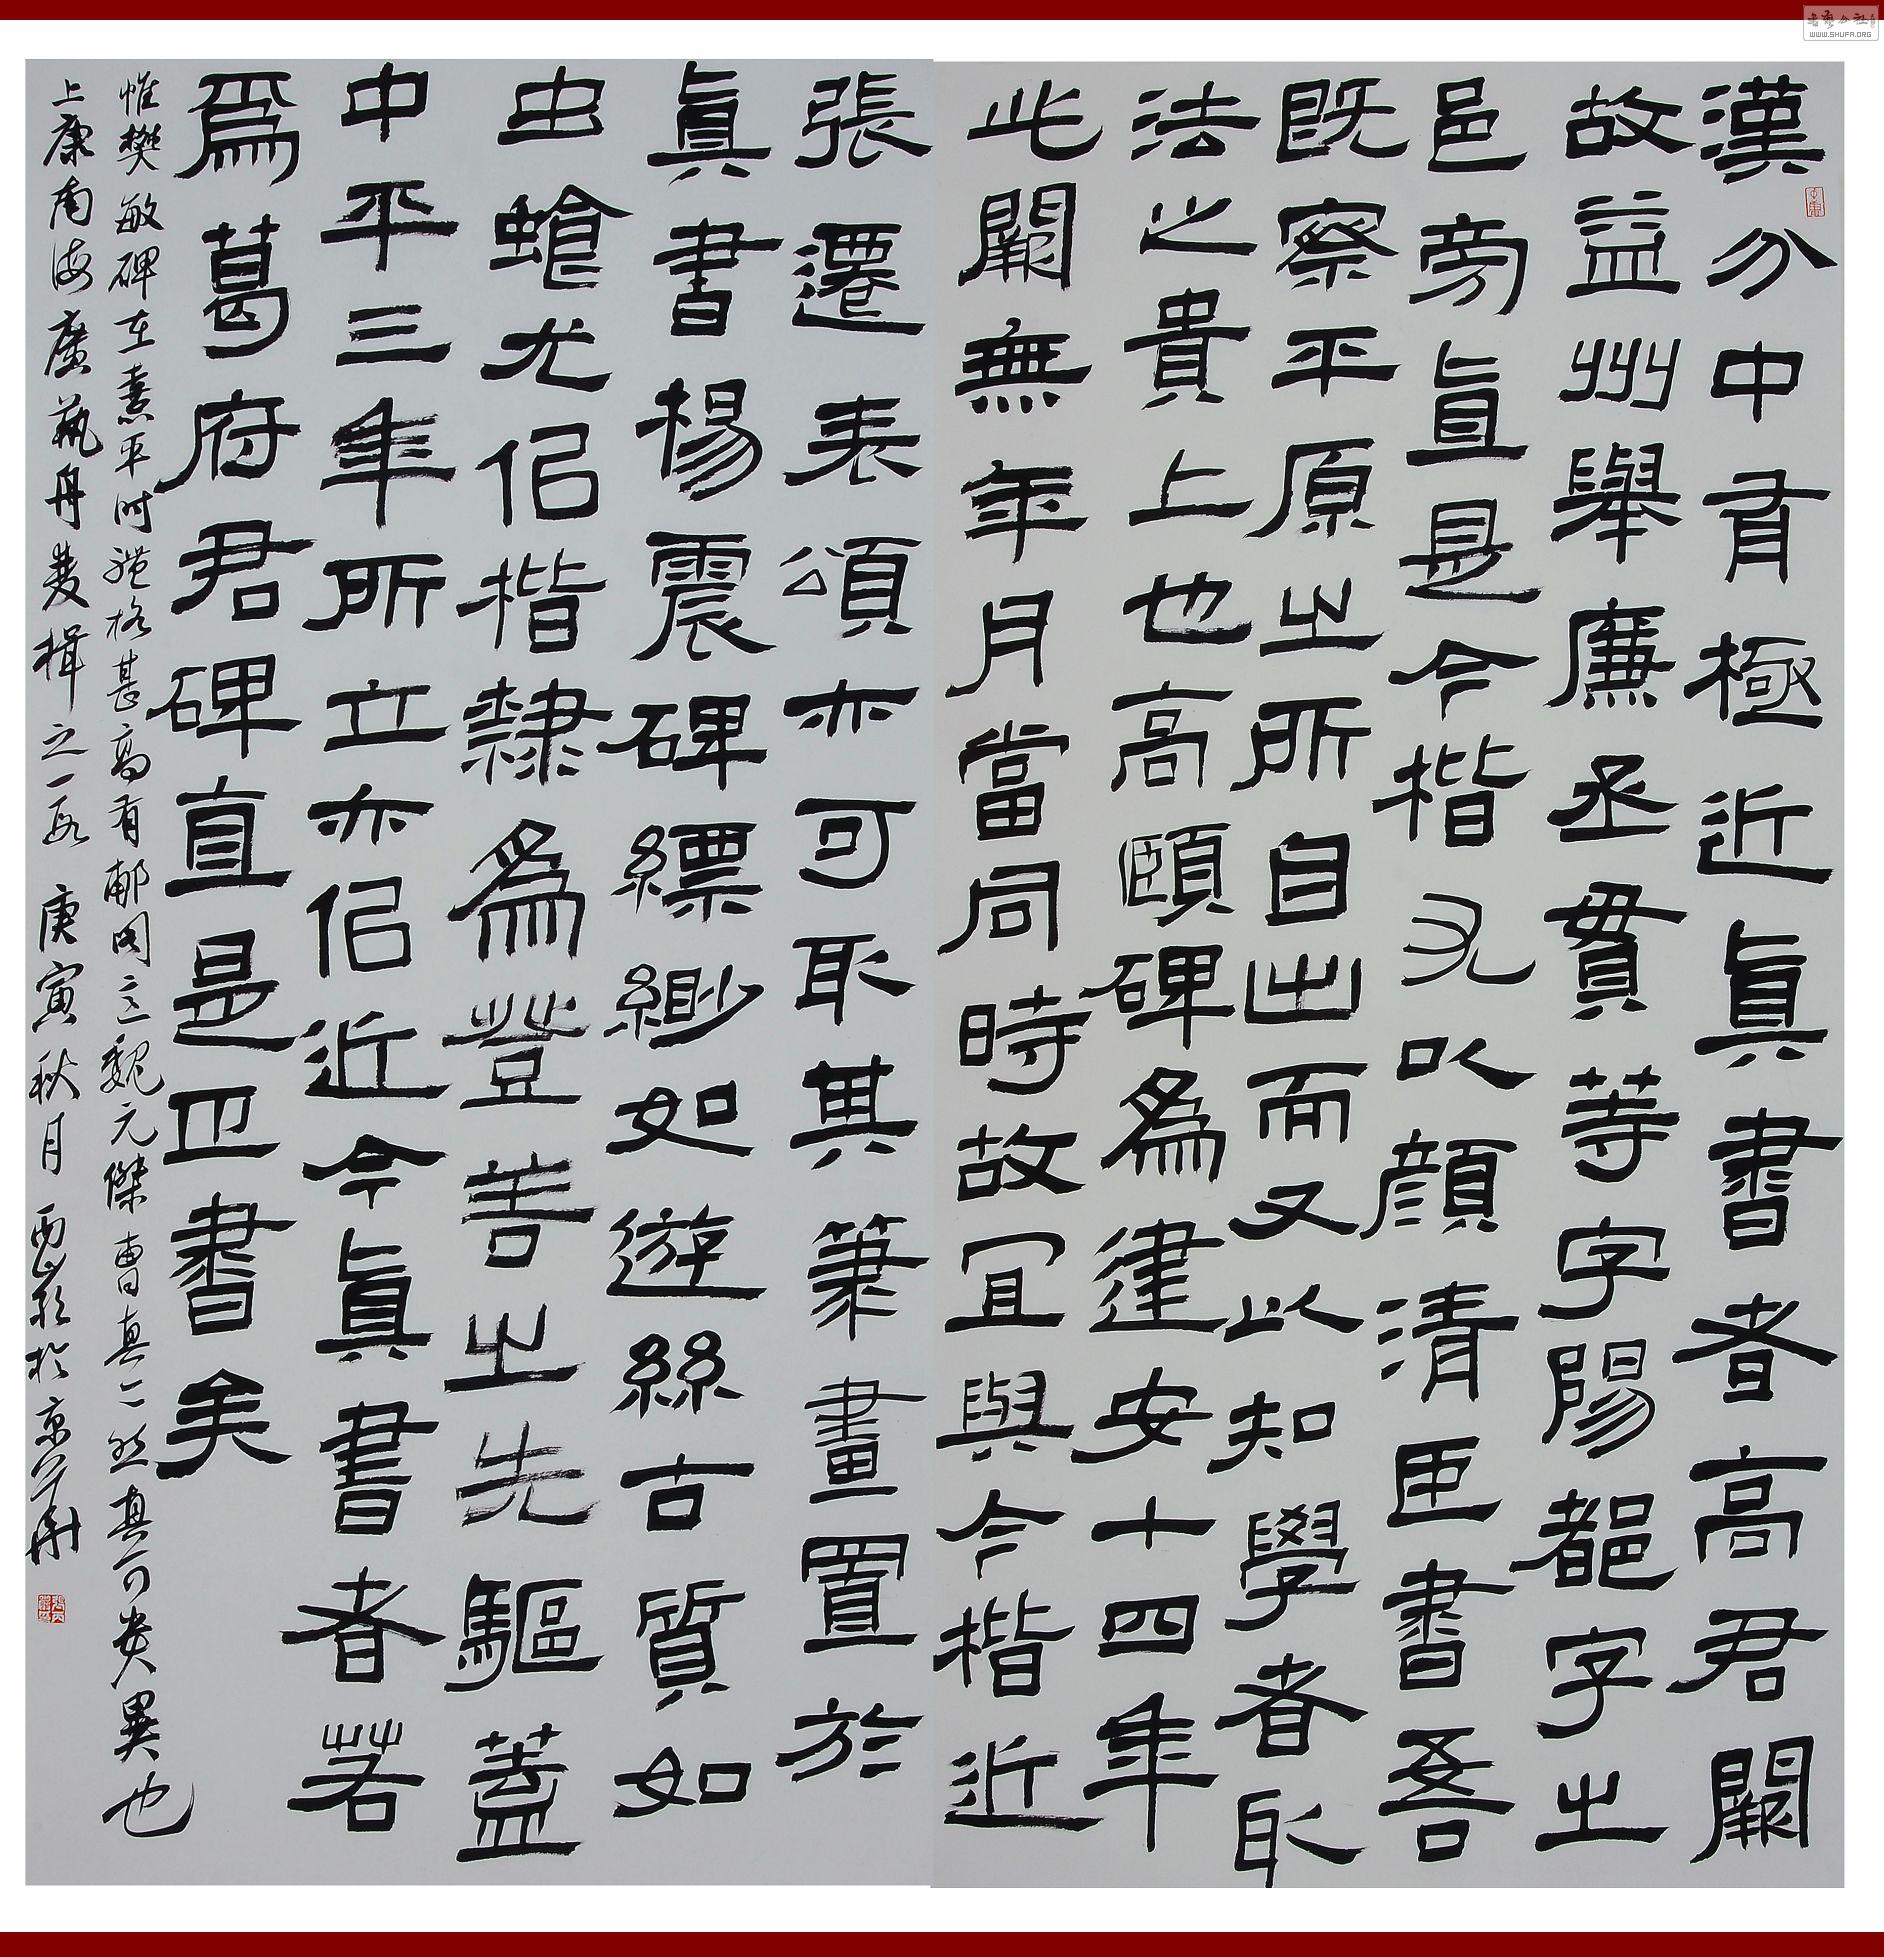 漢分中有極近真書者高君闕
故益州舉廉丞貫等字陽都字之
邑旁直是今楷又以顏清臣書吾
既察平原之所自出而又以知學者取
法之貴上也高頤碑為建安十四年
此闕無年月當同時故宜與今楷近
張遷表頌亦可取其筆畫置於
真書楊震碑縹緲如遊絲古質如
虫蝕尤佀楷隸為登善之先驅蓋
中平三年所立亦佀近今真書者若
為葛府君碑直是正書矣
惟樊敏碑在熹平時體格甚高有郙閣意魏元傑曹真亦然真可貴異也
上康南海廣藝舟雙楫之一段 庚寅秋月 於京華
WWW.SHUFA.ORG